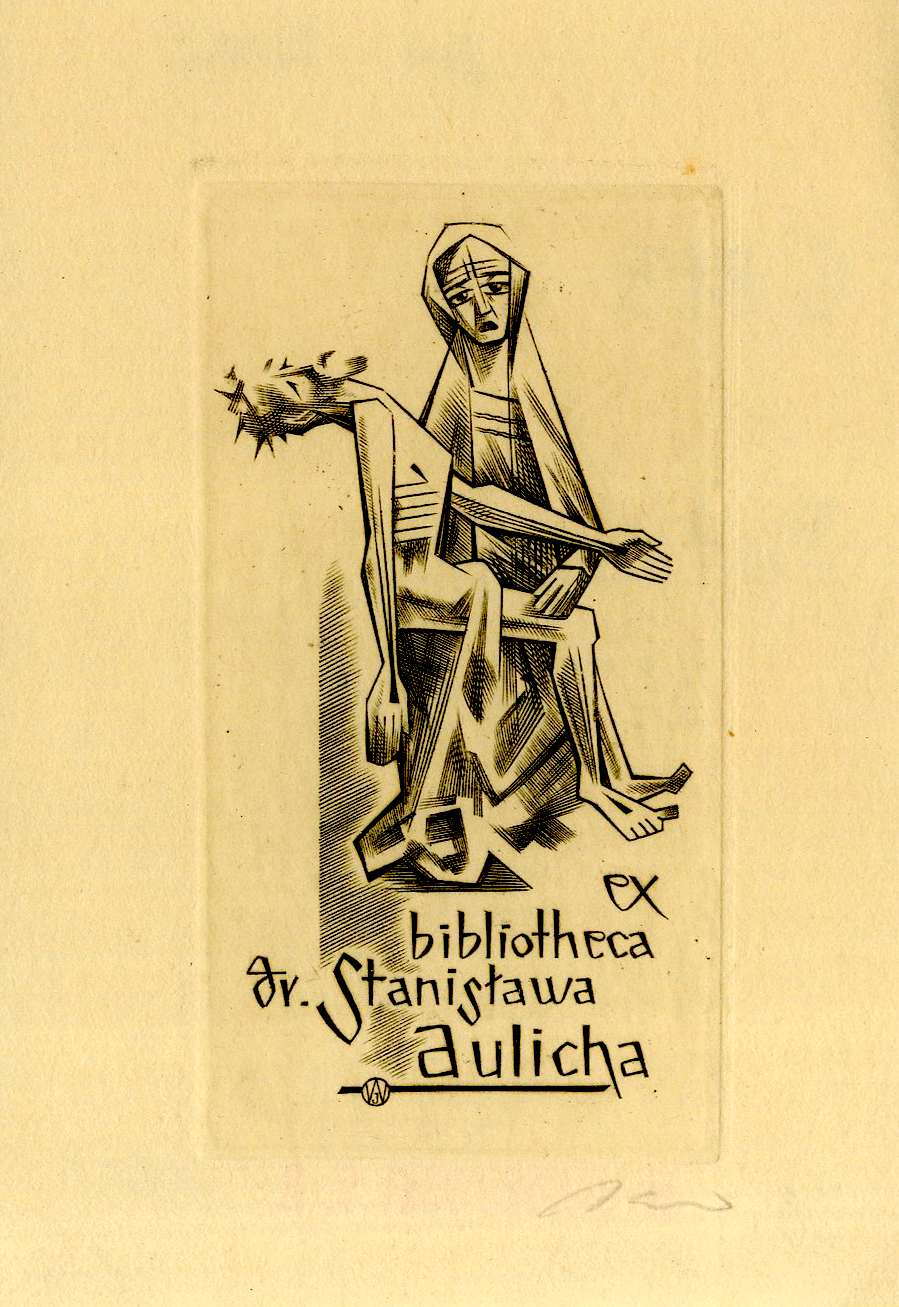 ex
bibliotheca
dr. Stanisława
aulicha